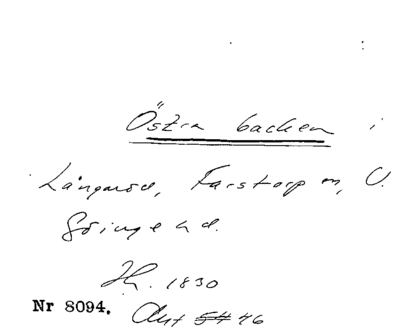 Östra backen i
Långaröd, Farstorp sn, V.
Göinge hd.
Ih. 1830
Nr 8094. Akt 54 46